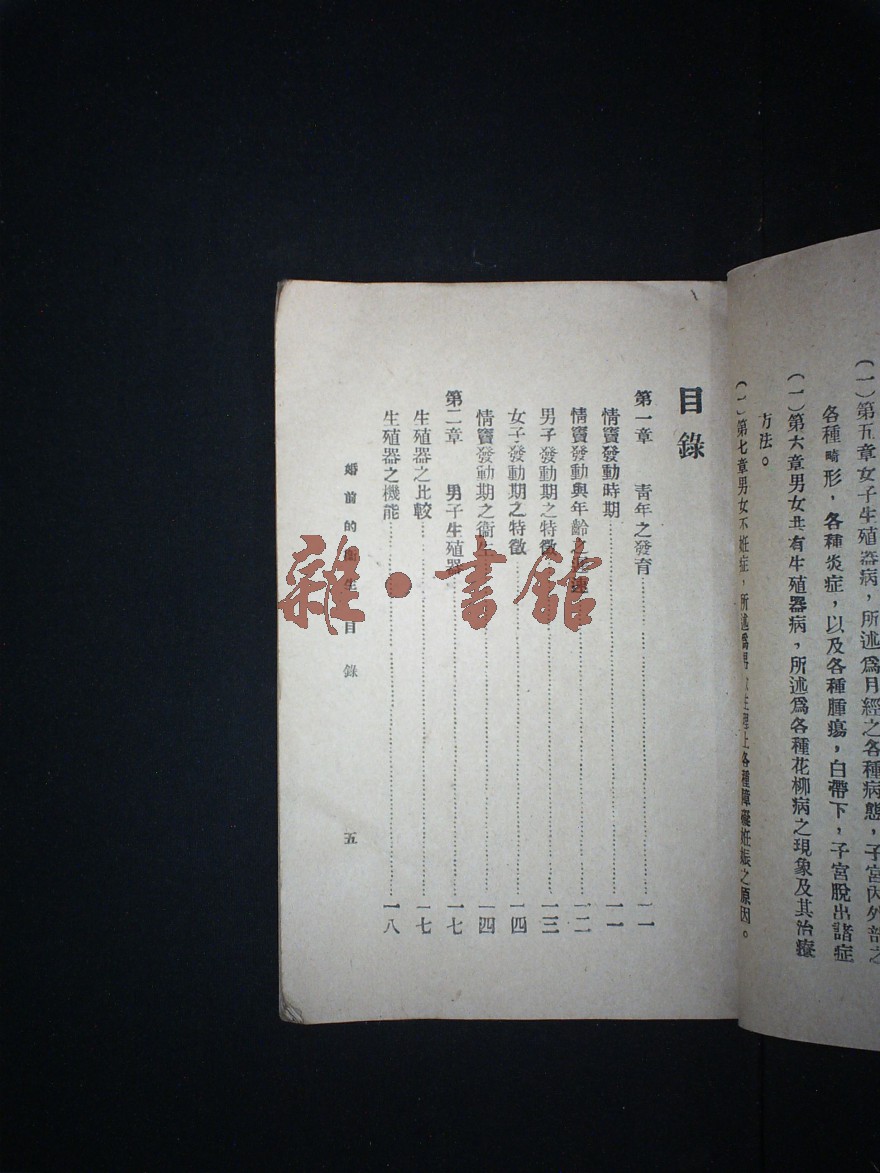 (一)第五章女子生殖器病，所述爲月經之各種病態，子宮內外部之
各種畸形，各種炎症，以及各種腫瘍，白帶下，子宮脫出諸症
(一)第六章男女共有生殖器病，所述爲各種花柳病之現象及其治療
方法。
(一)第七章男女不妊症，所述爲男 生理上各種障礙妊娠之原因。
目錄
第一章 青年之發育……一一
情竇發動時期……一一
情竇發動與年齡……一二
男子發動期之特徵……一三
女子發動期之特徵……一四
情竇發動期之衞生……一四
第二章 男子生殖器……一七
生殖器之比較……一七
生殖器之機能……一八
婚前的 生 目錄
五
雜·書館